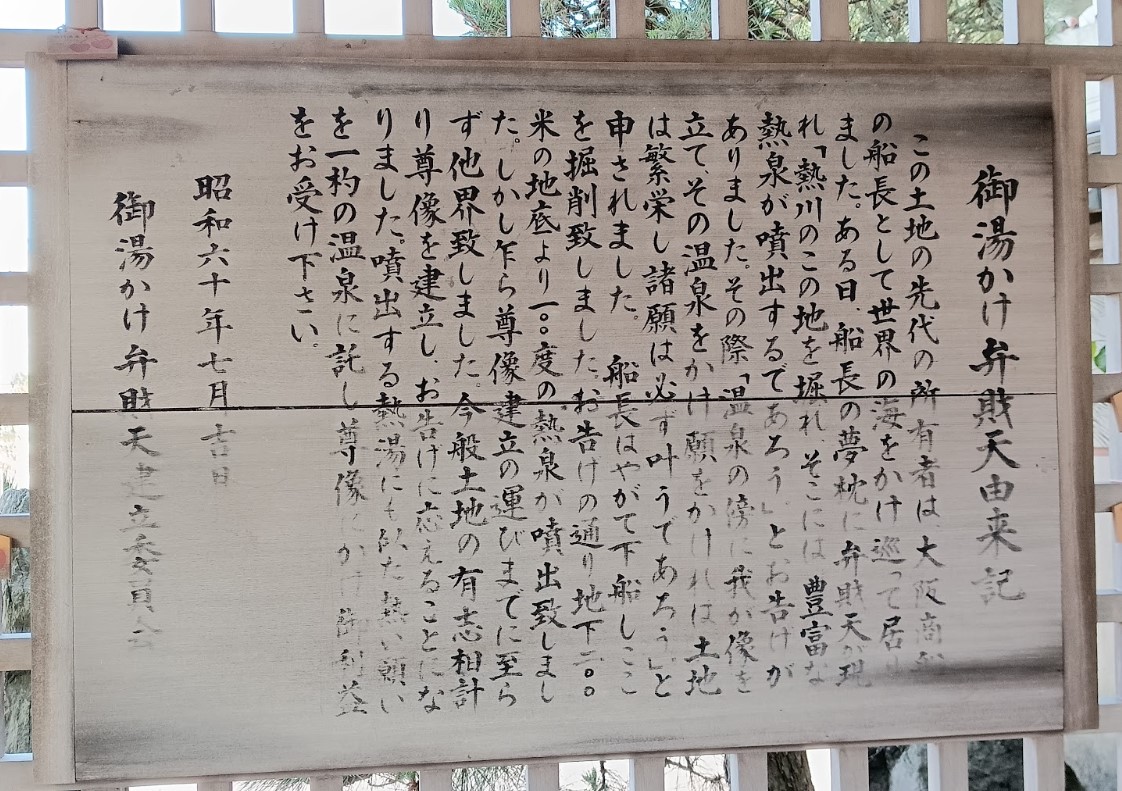 御湯かけ弁財天由来記
この土地の先代の所有者は、大阪商船
の船長として世界の海をかけ巡って居り
ました。ある日、船長の夢枕に弁財天が現
れ「熱川のこの地を掘れ、そこには豊富な
熱泉が噴出するであろう」とお告げが
ありました。その際「温泉の傍に我が像を
立て、その温泉をかけ願をかければ土地
は繁栄し諸願は必ず叶うであろう」と
申されました。船長はやがて下船しここ
を掘削致しました、お告げの通り地下二〇〇
米の地底より一〇〇度の熱泉が噴出致しまし
た。しかし乍ら尊像建立の運びまでに至ら
ず他界致しました。今般土地の有志相計
り尊像を建立し、お告げに応えることにな
りました。噴出する熱湯にも似た熱い願い
を一杓の温泉に託し尊像にかけ御利益
をお受け下さい。
昭和六十年七月吉日
御湯かけ弁財天建立委員会